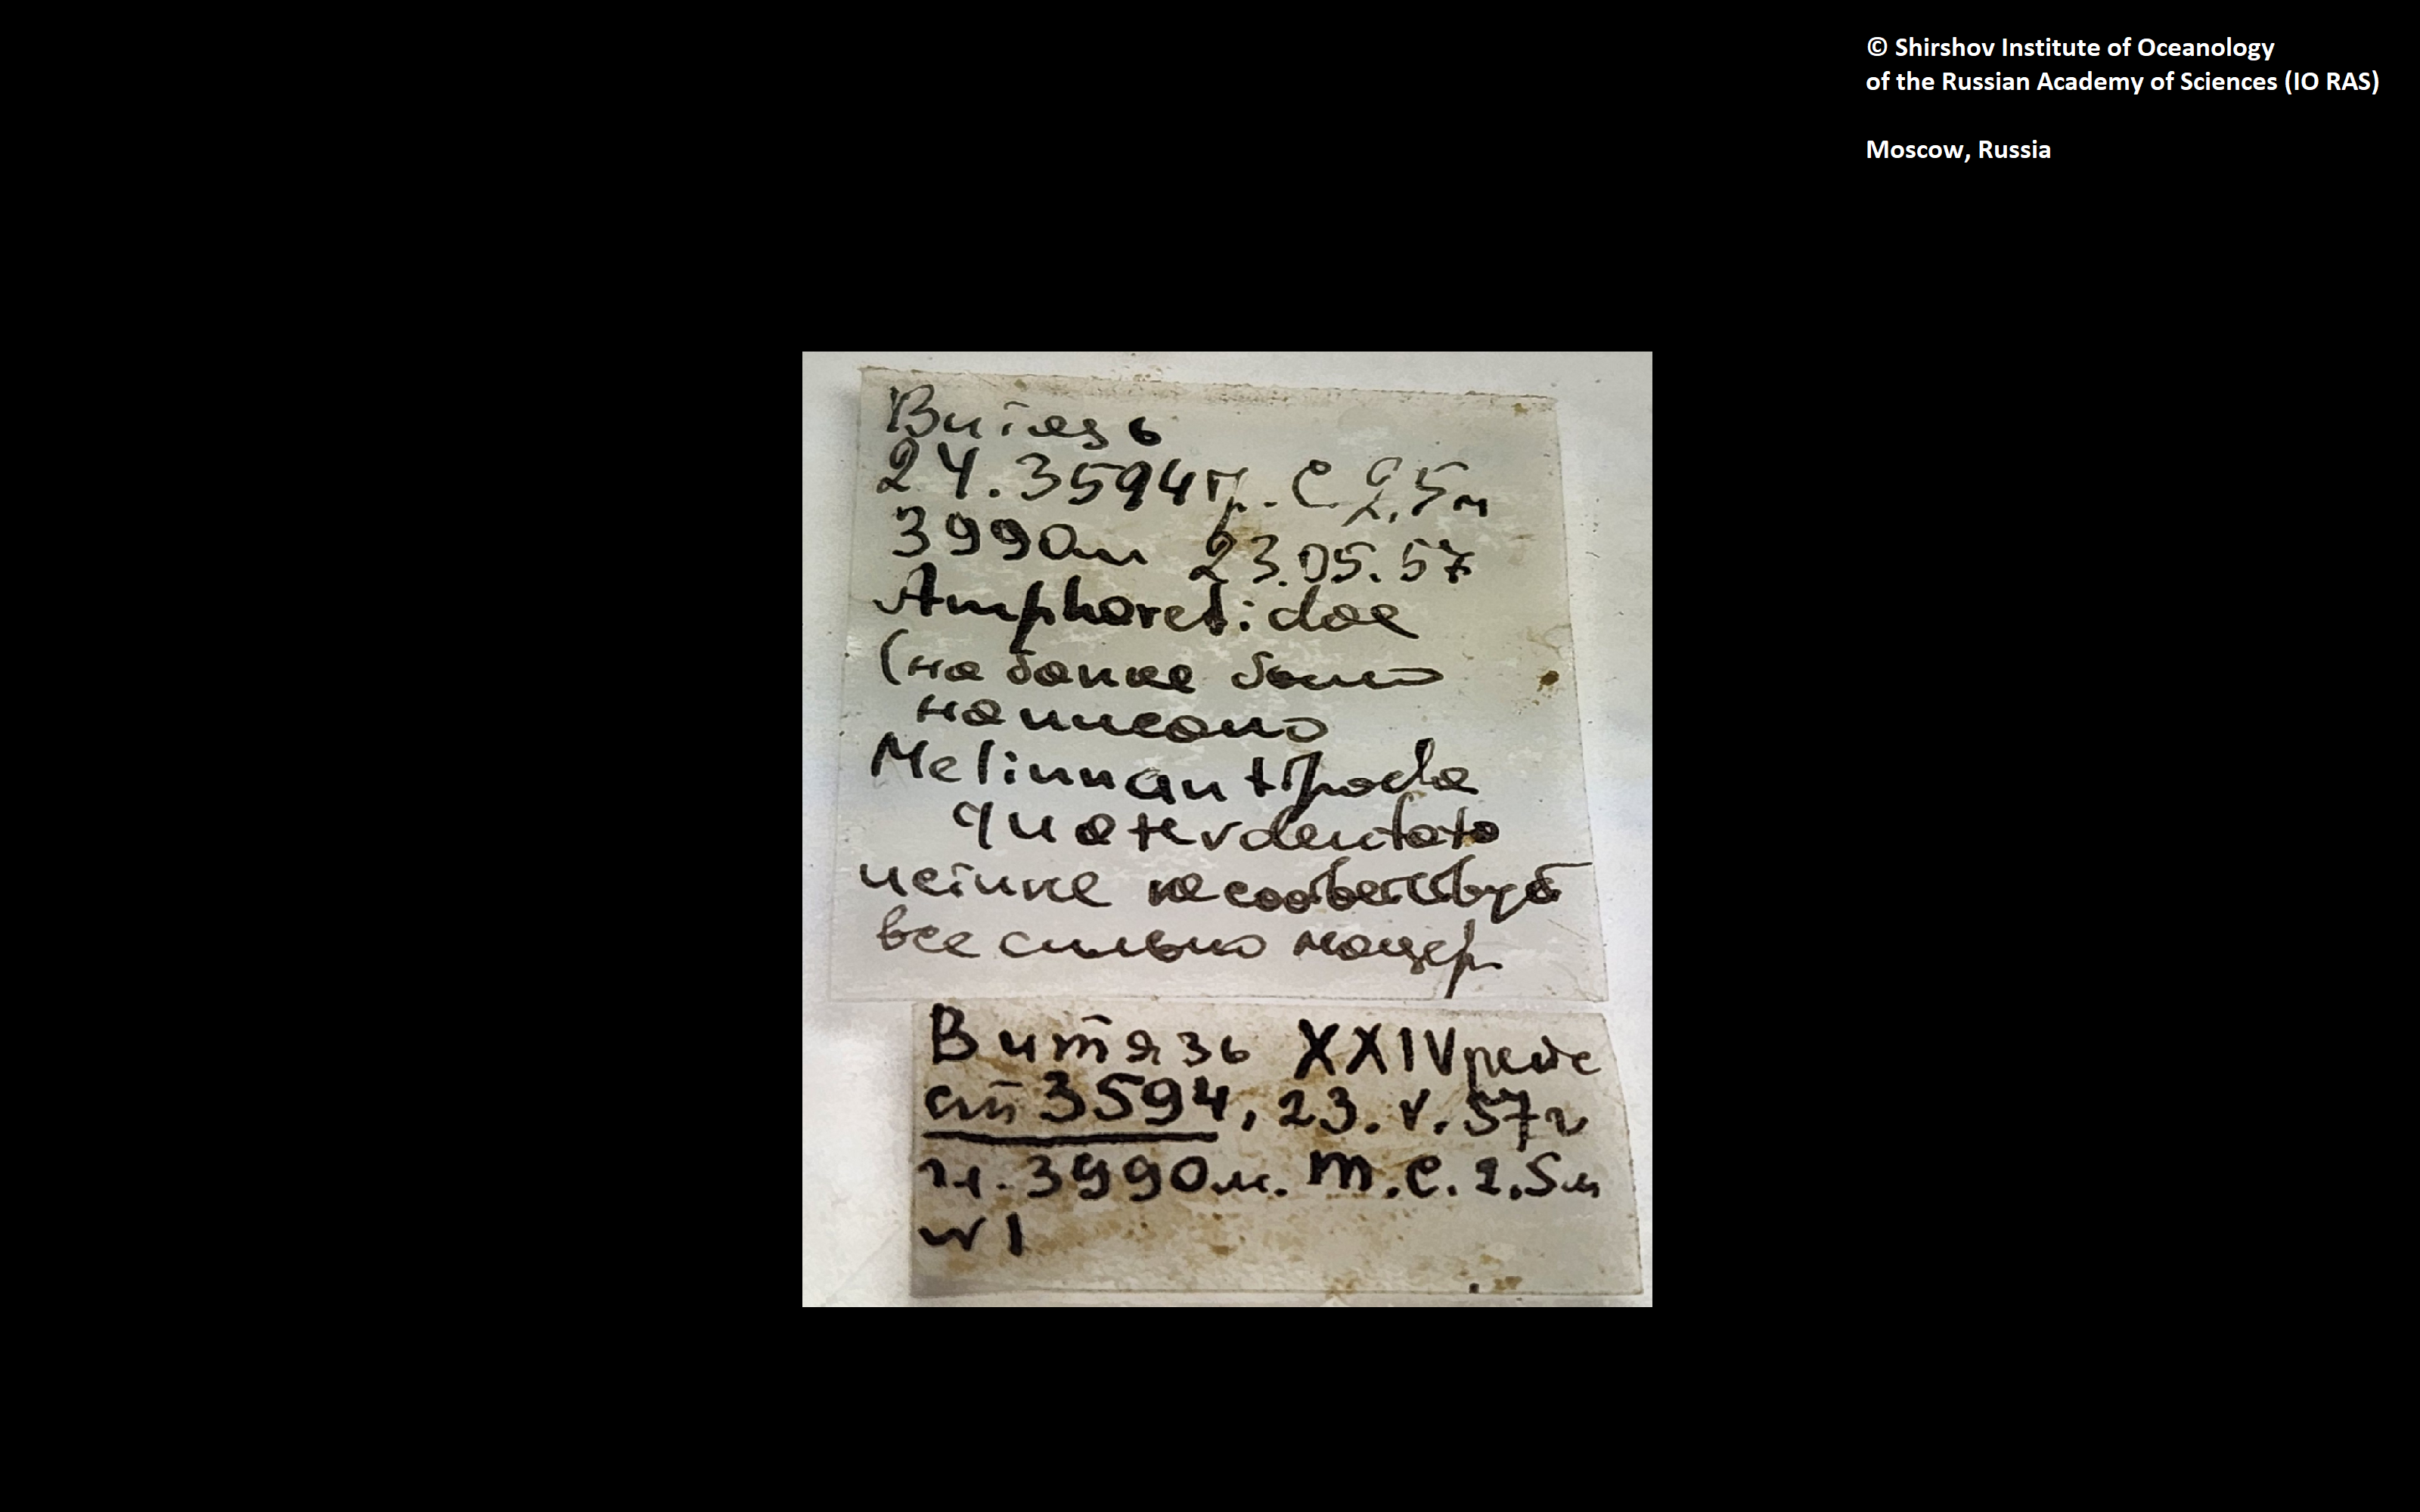 © Shirshov Institute of Oceanology
of the Russian Academy of Sciences (IO RAS)
Moscow, Russia
Витязь
24. 3594 тр. С 2,5м
3990м 23.05.57
Ampharetidae
(на банке было
написано
Melinnantipoda
quaterdentata
истине не соответствует
все сильно мацер
Витязь XXIV рейс
ст 3594, 23.V.57г
гл. 3990м. т.с. 2.5м
w1